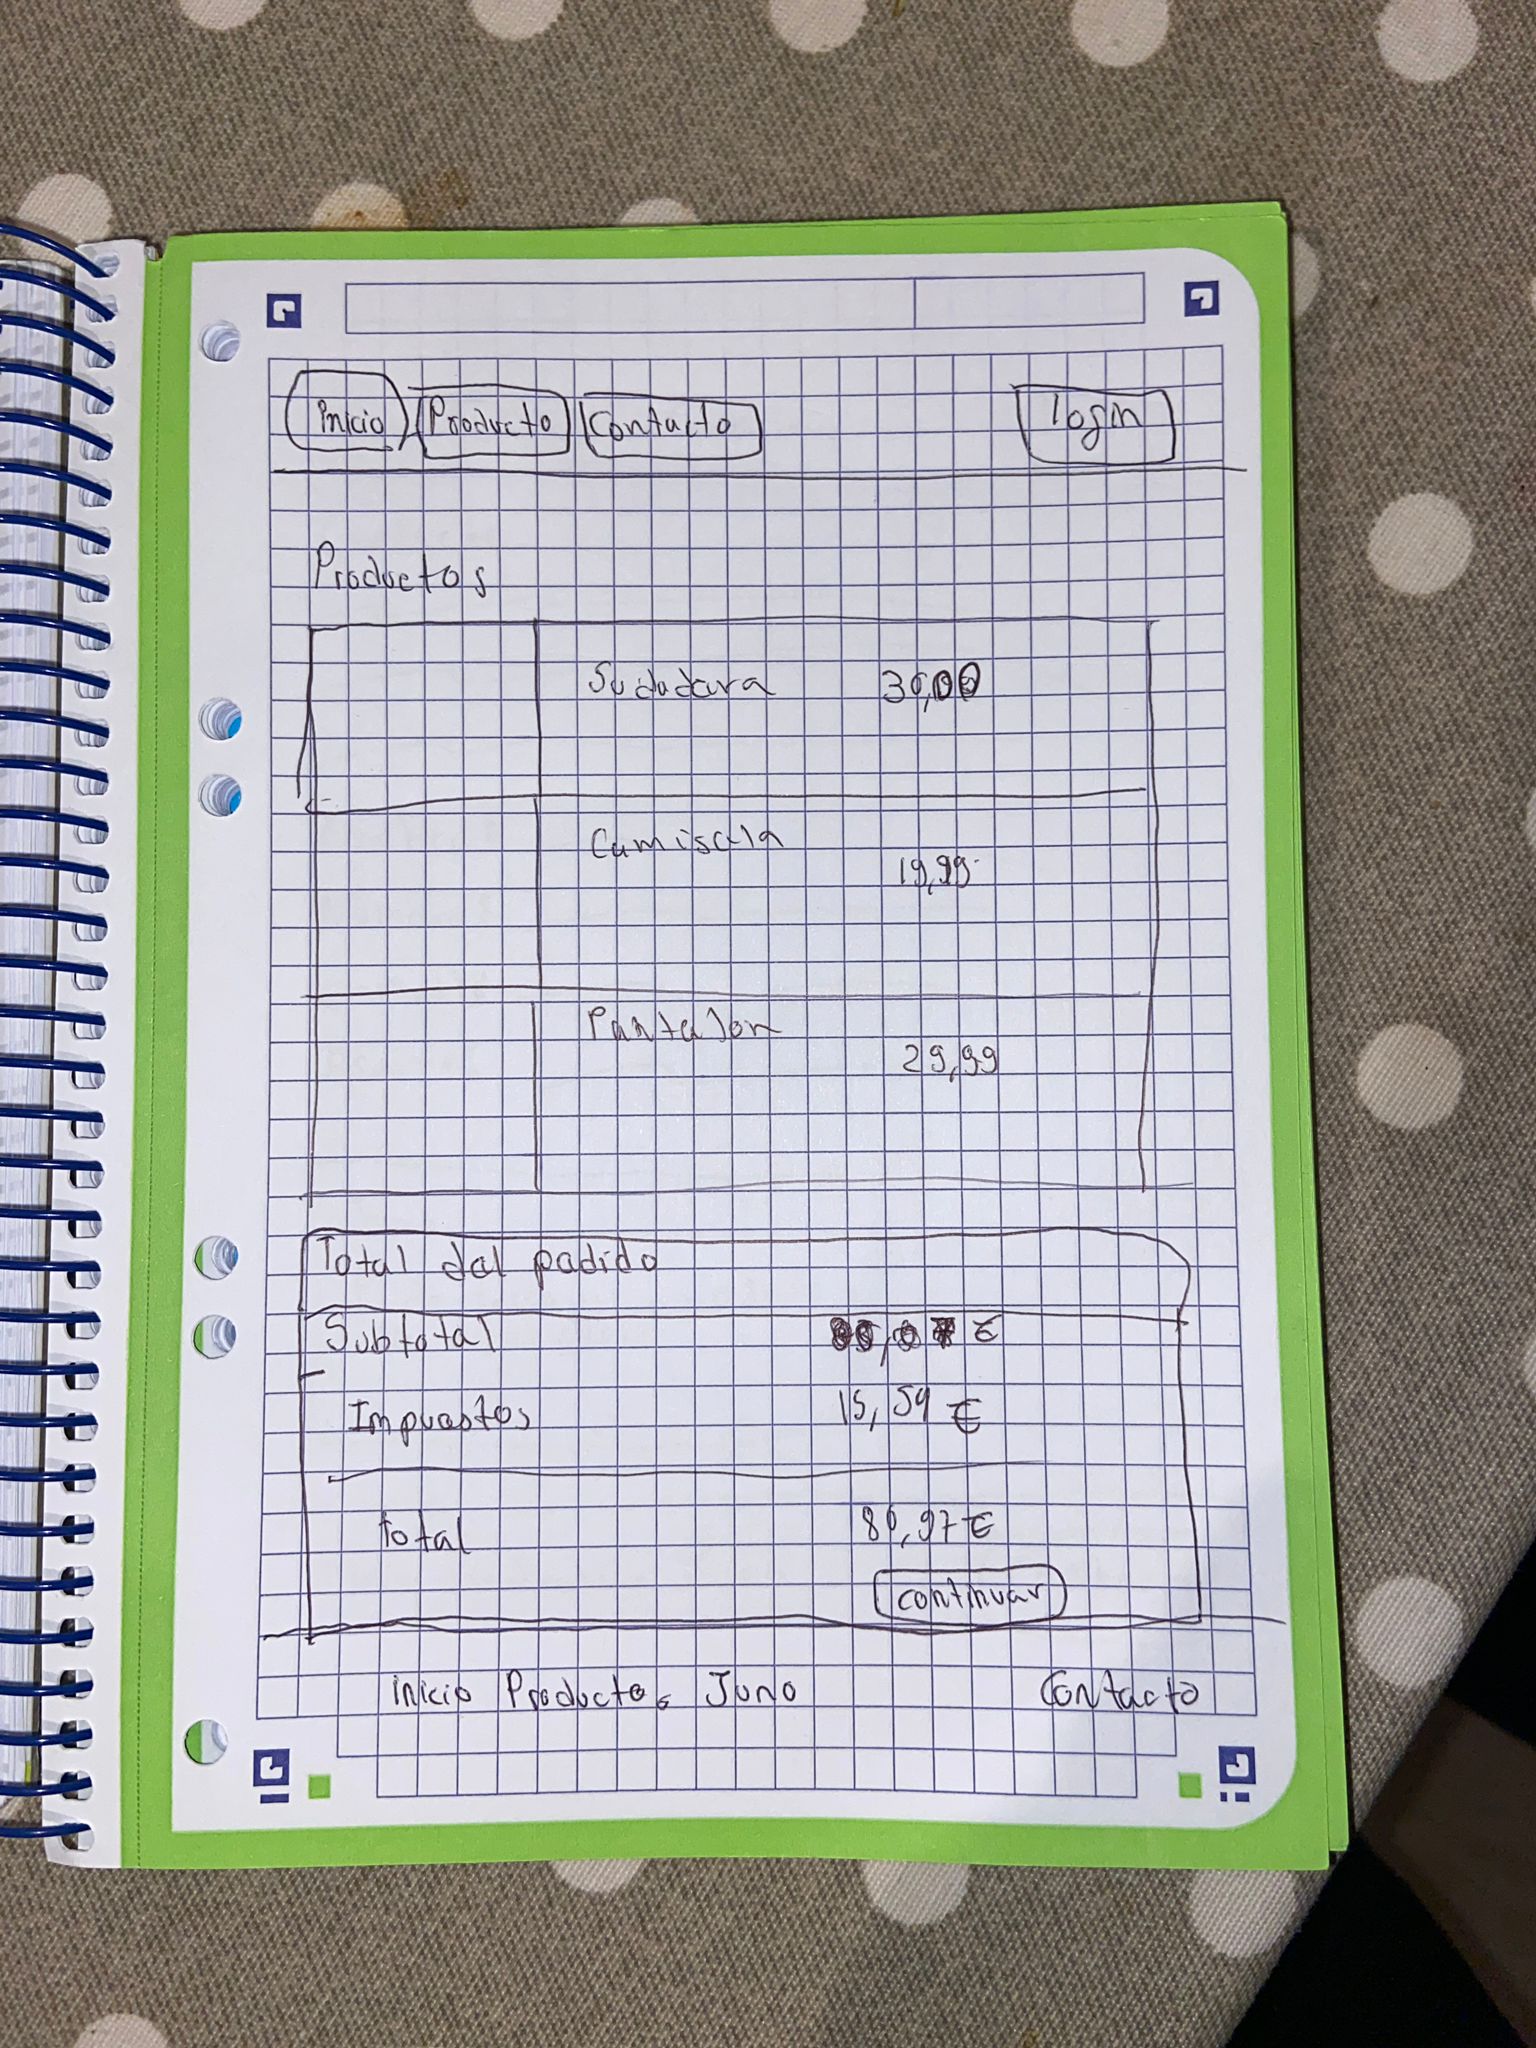 Inicio Producto Contacto login
Productos
Sudadera 30,00
Camiseta
19,99
Pantalon
29,99
Total del pedido
Subtotal €
Impuestos 15,59 €
total 80,97 €
continuar
inicio Productos Juno Contacto